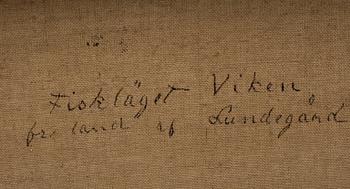 Fiskläget Viken
land af Lundegård